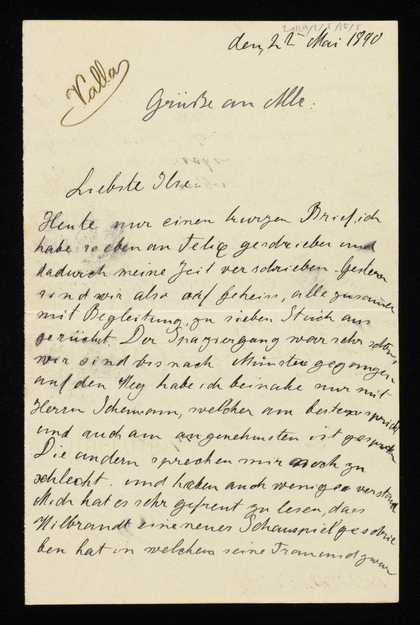 den 22ten Mai 1890
Valla
Grüße an Alle:
Liebste Ilse.
Heute nur einen kurzen Brief, ich
habe soeben an Felix geschrieben und
dadurch meine Zeit verschrieben. Gestern
sind wir also auf Geheiss, alle zusammen
mit Begleitung, zu sieben Stück aus
gerückt. Der Spaziergang war sehr schön,
wir sind bis nach Münster gegangen
auf den Weg habe ich beinahe nur mit
Herrn Schemann, welcher am besten spricht
und auch am angenehmsten ist gesprochen
Die andern sprechen mir noch zu
schlecht. und haben auch weniger verstand
Mich hat es sehr gefreut zu lesen, dass
Wilbrandt ein neues Schauspiel geschrie
ben hat in welchem seine Frau und zwar